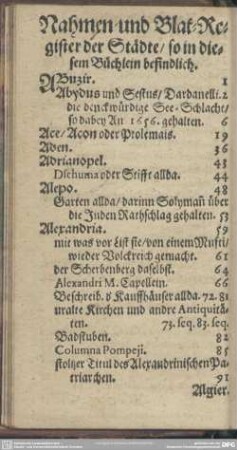 Nahmen und Blat-Re-
gister der Städte / so in die-
sem Büchlein befindlich.
ABuzir. 1
Abydus und Sestus / Dardanelli. 2
die denckwürdige See-Schlacht /
so dabey An 1656. gehalten. 6
Ace / Acon oder Ptolemais. 19
Aden. 36
Adrianopel. 43
Dschuma oder Stifft allda. 44
Alepo. 48
Garten allda / darinn Solyman̄ über
die Juden Rathschlag gehalten. 53
Alexandria. 59
mit was vor List sie / von einem Mufti /
wieder Volckreich gemacht. 61
der Scherbenberg daselbst. 64
Alexandri M. Capellein. 66
Beschreib. d' Kauffhäuser allda. 72. 81
uralte Kirchen und andre Antiquitä-
ten. 73. seq. 83. seq.
Badstuben. 82
Columna Pompeji. 85
stoltzer Titul des Alexandrinischen Pa-
triarchen. 91
Algier.